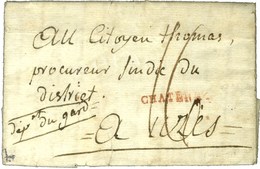 Au Citoyen thomas,
procureur sindic du
district.
dépt du gard
= a uzès =